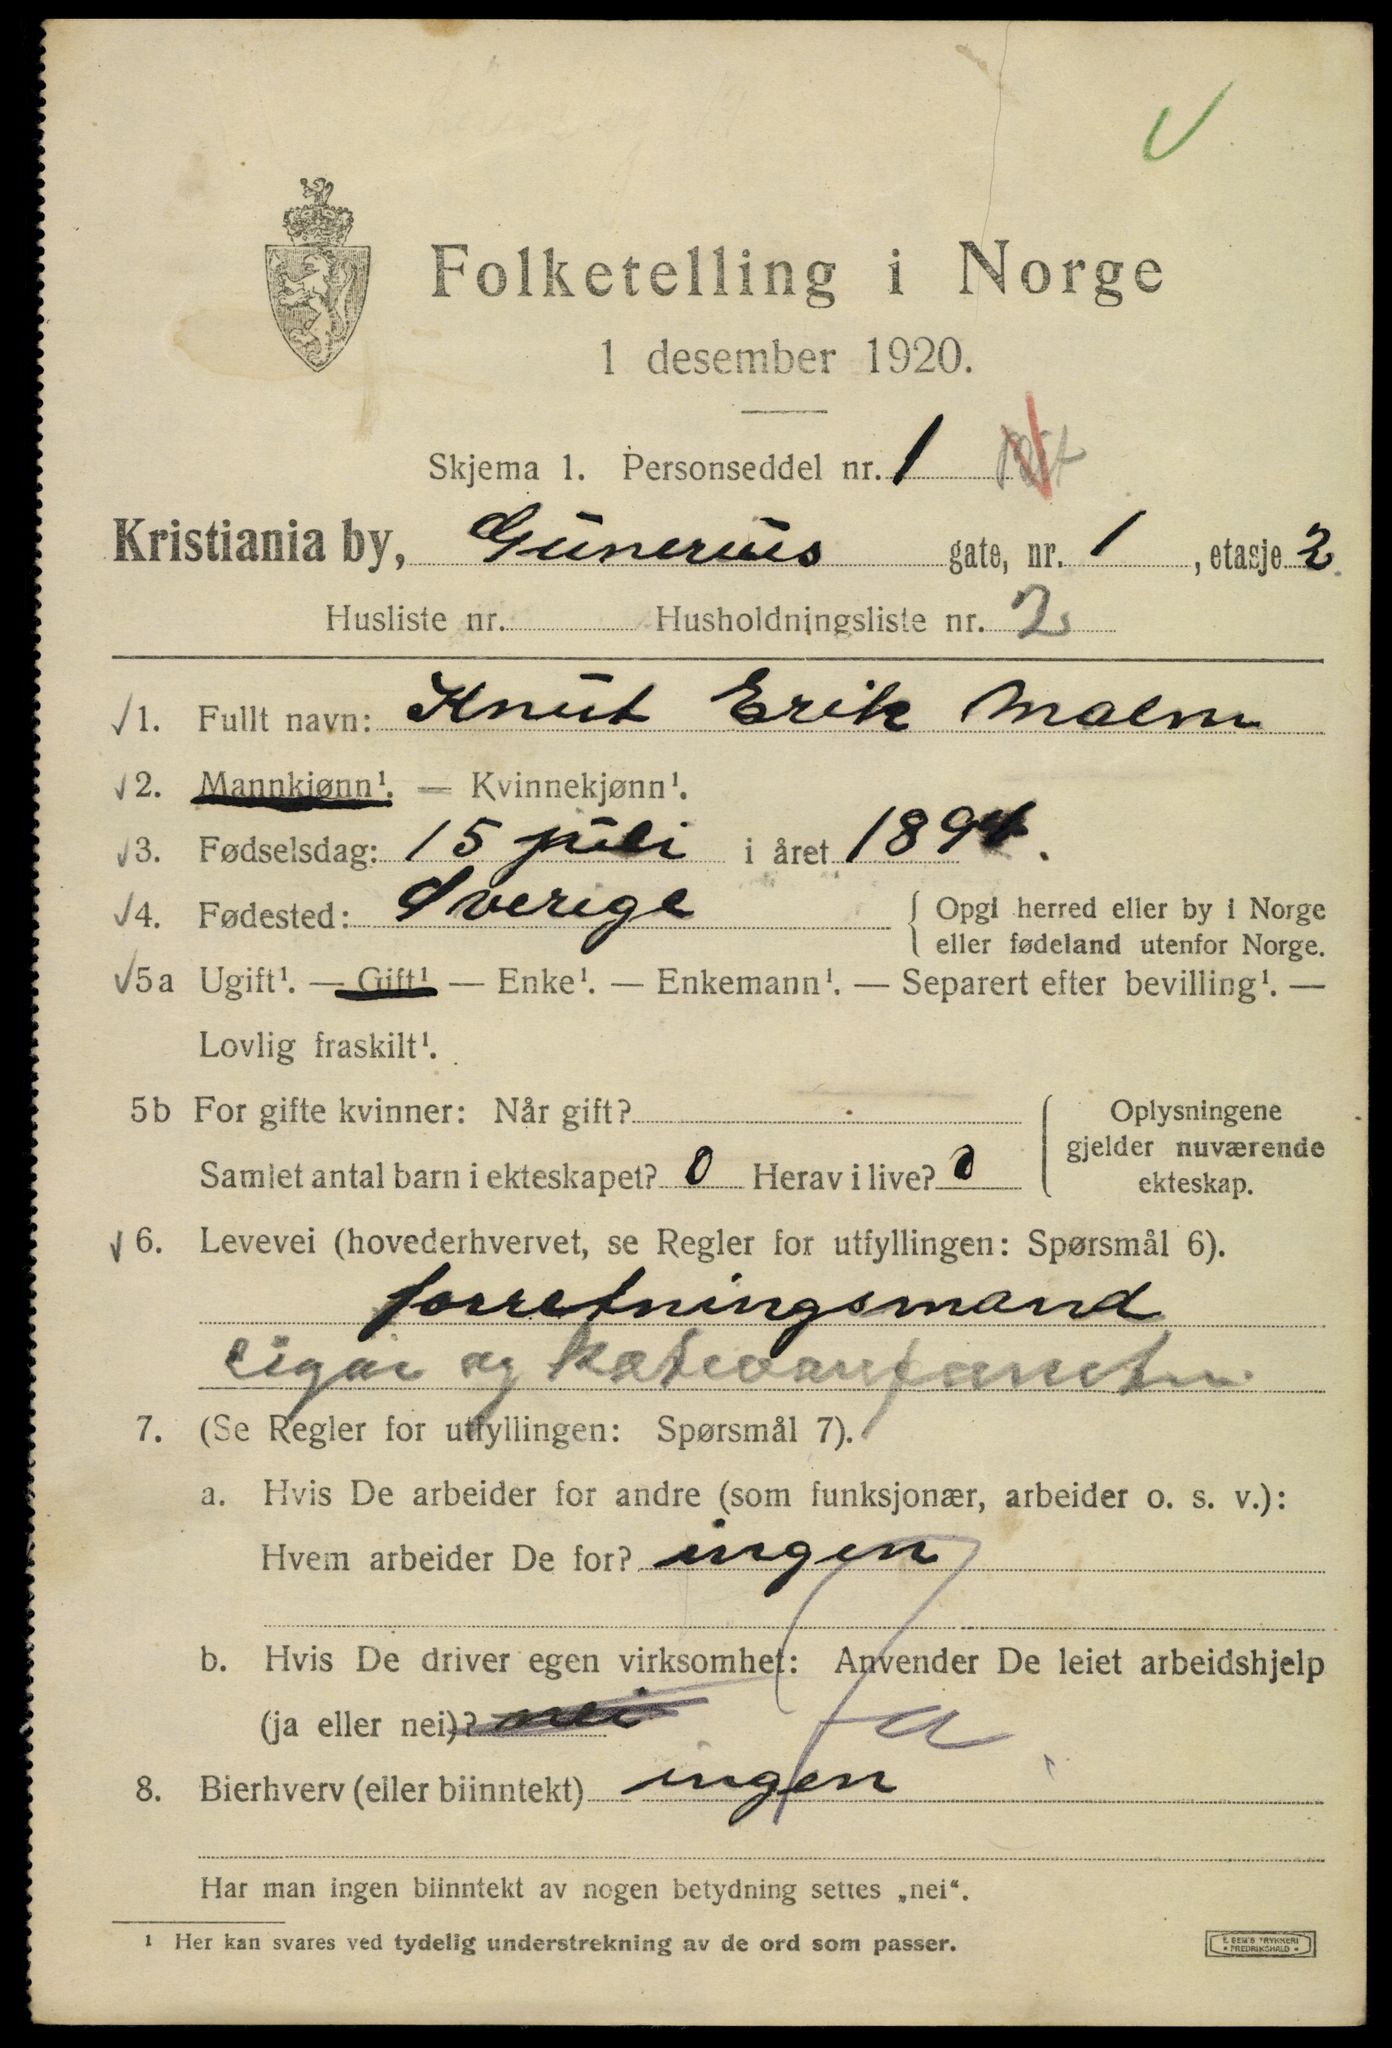 Folketelling i Norge
1 desember 1920.
Skjema 1. Personseddel nr. 1
Kristiania by, Gunerius gate, nr. 1, etasje 2
Husliste nr. Husholdningsliste nr. 2
1. Fullt navn: Knut Erik Malm
2. Mannkjønn¹. — Kvinnekjønn¹.
3. Fødselsdag: 15 juli i året 1894.
4. Fødested: Sverige { Opgi herred eller by i Norge
eller fødeland utenfor Norge.
5a Ugift¹. — Gift¹ — Enke¹. — Enkemann¹. — Separert efter bevilling¹. —
Lovlig fraskilt¹.
5b For gifte kvinner: Når gift? { Oplysningene
gjelder nuværende
Samlet antal barn i ekteskapet? 0 Herav i live? 0 ekteskap.
6. Levevei (hovederhvervet, se Regler for utfyllingen: Spørsmål 6).
forretningsmand
cigar og
7. (Se Regler for utfyllingen: Spørsmål 7).
a. Hvis De arbeider for andre (som funksjonær, arbeider o. s. v.):
Hvem arbeider De for? ingen
b. Hvis De driver egen virksomhet: Anvender De leiet arbeidshjelp
(ja eller nei)? nei Ja
8. Bierhverv (eller biinntekt) ingen
Har man ingen biinntekt av nogen betydning settes „nei“.
¹ Her kan svares ved tydelig understrekning av de ord som passer.
E. SEM'S TRYKKERI
FREDRIKSHALD